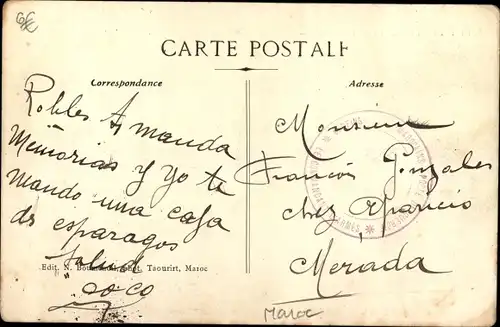 CARTE POSTALE
Correspondance
Adresse
Robles Amanda
Memorias y yo te
mando una caja
de esparagos
Salud
coco
Edit. N. Phot. Taourirt, Maroc
Monsieur
François Gonzales
chez
Merada
Maroc